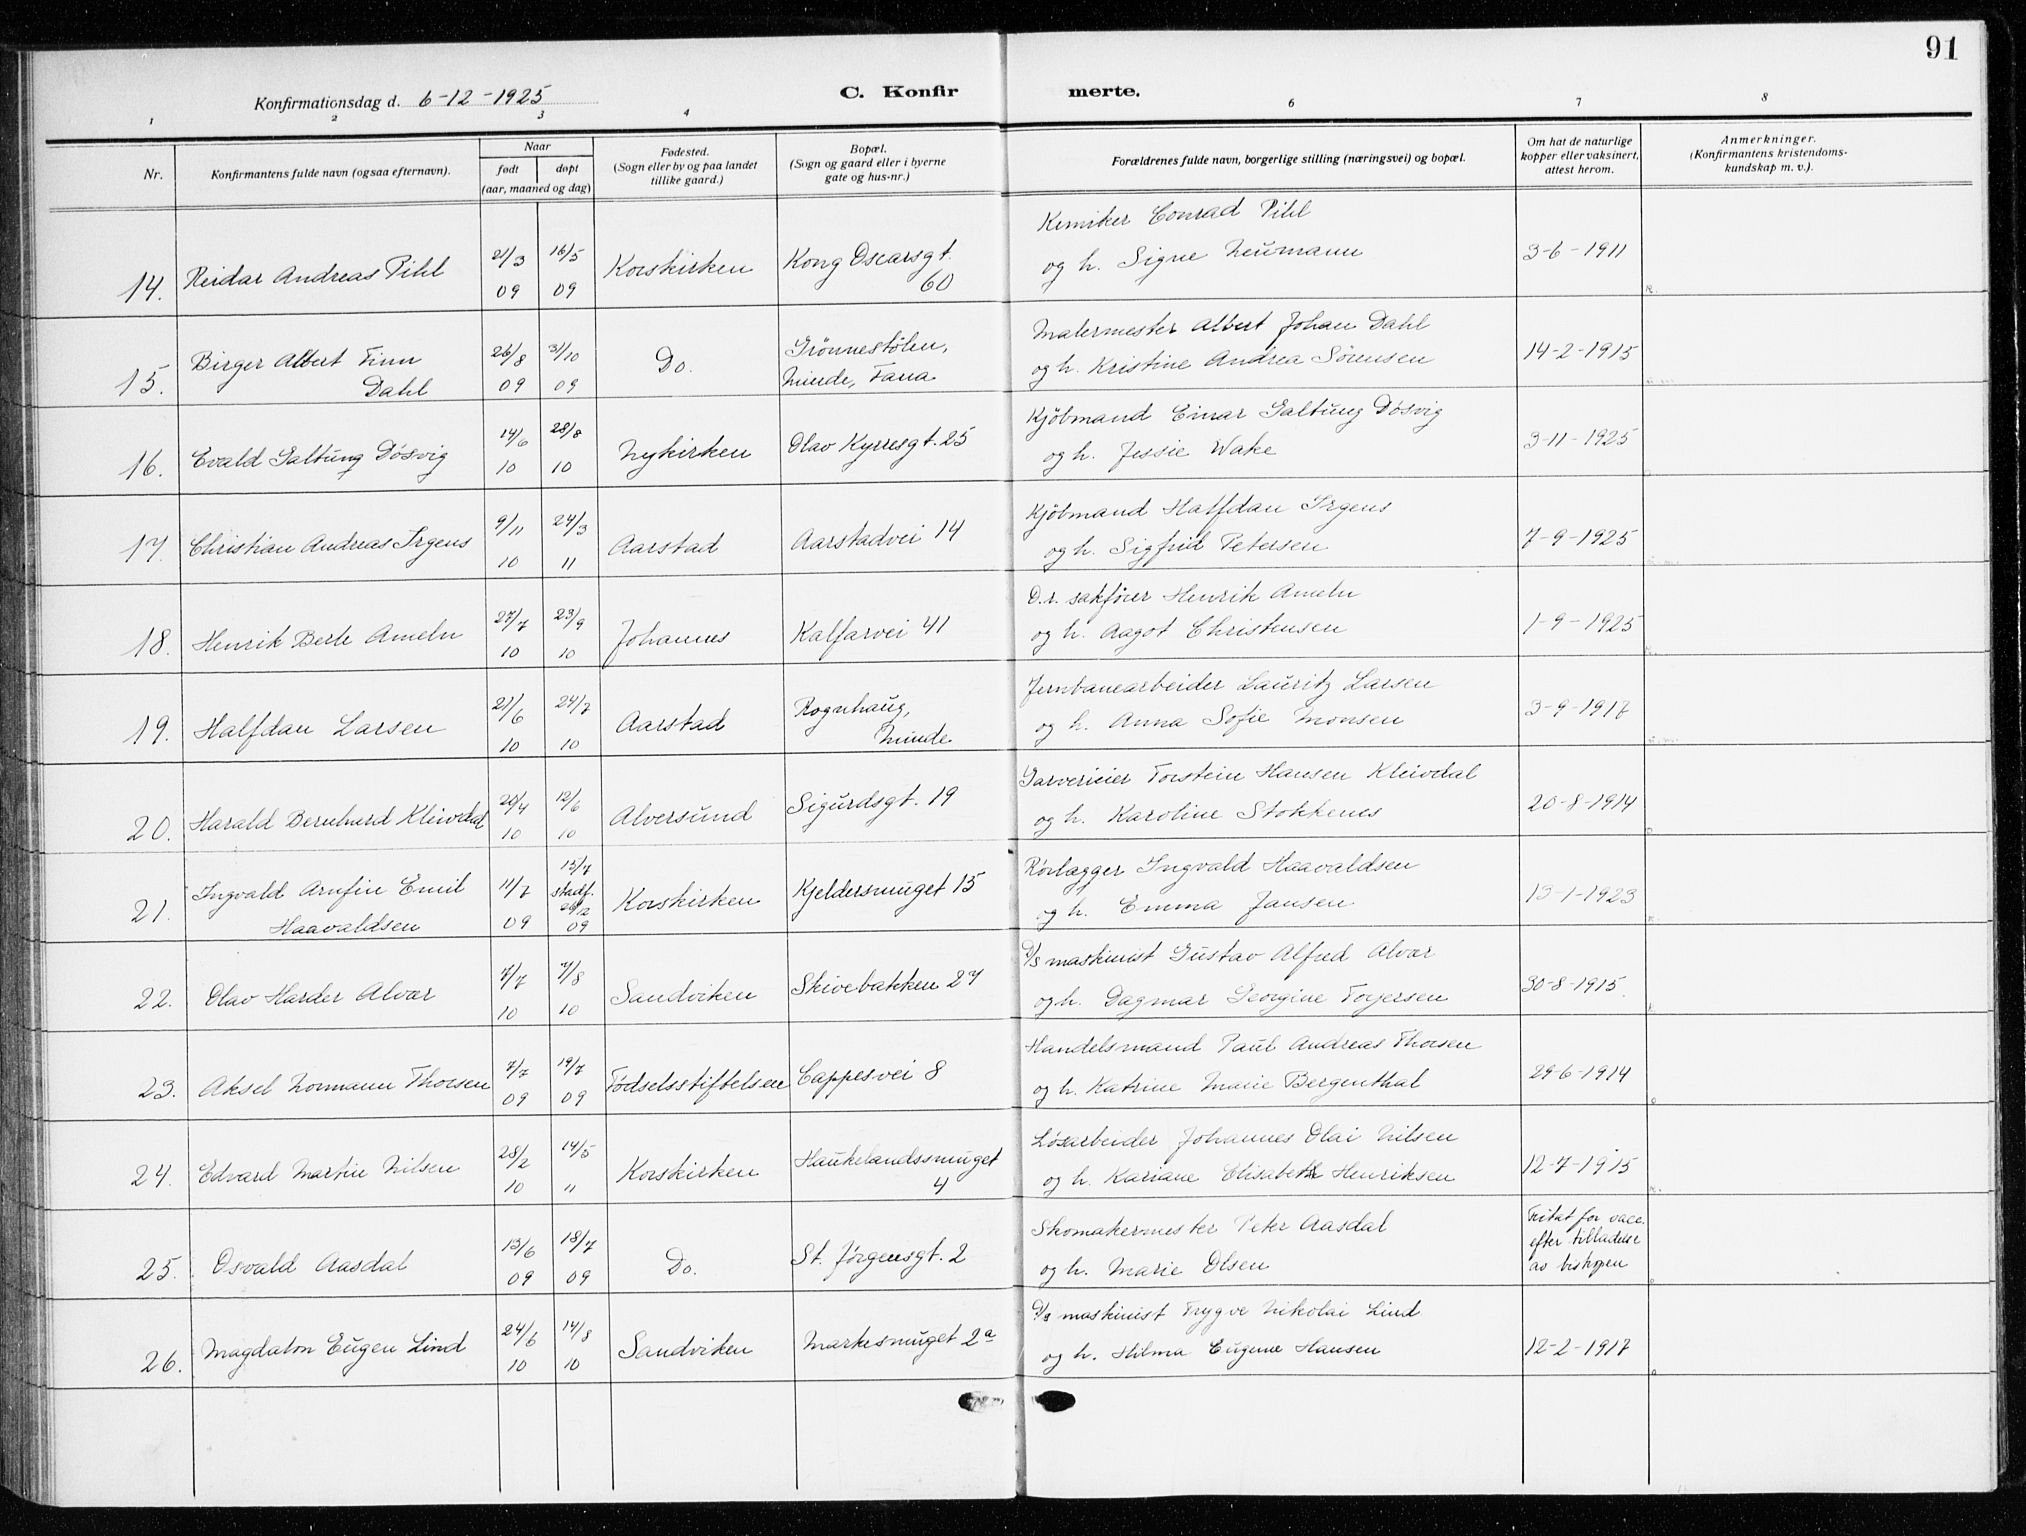 91
Konfirmationsdag d. 6-12-1925
C. Konfirmerte.
1 2 3 4 6 7 8
Nr.
Konfirmantens fulde navn (ogsaa efternavn).
Naar
født døpt
(aar, maaned og dag)
Fødested.
(Sogn eller by og paa landet
tillike gaard.)
Bopæl.
(Sogn og gaard eller i byerne
gate og hus-nr.)
Forældrenes fulde navn, borgerlige stilling (næringsvei) og bopæl.
Om hat de naturlige
kopper eller vaksinert,
attest herom.
Anmerkninger.
(Konfirmantens kristendoms-
kundskap m. v.).
14. Reidar Andreas Pihl 21/3 09 16/5 09 Korskirken Kong Oscarsgt. 60
Kemiker Conrad Pihl
og h. Signe Neumann
3-6-1911
15. Birger Albert Finn Dahl 26/8 09 31/10 09 Do. Grönnestölen, Minde, Fana
Malermester Albert Johan Dahl
og h. Kristine Andrea Sørensen
14-2-1915
16. Evald Galtung Døsvig 14/6 10 28/8 10 Nykirken Olav Kyrresgt. 25
Kjøbmand Einar Galtung Døsvig
og h. Jessie Wake
3-11-1925
17. Christian Andreas Irgens 9/11 10 24/3 11 Aarstad Aarstadvei 14
Kjøbmand Halfdan Irgens
og h. Sigfrid Petersen
7-9-1925
18. Henrik Berle Ameln 27/7 10 23/9 10 Johannes Kalfarvei 41
O.r. sakfører Henrik Ameln
og h. Aagot Christensen
1-9-1925
19. Halfdan Larsen 21/6 10 24/7 10 Aarstad Rognhaug, Minde
Jernbanearbeider Lauritz Larsen
og h. Anna Sofie Monsen
3-9-1917
20. Harald Bernhard Kleivdal 20/4 10 12/6 10 Alversund Sigurdsgt. 19
Garverieier Torstein Hansen Kleivdal
og h. Karoline Stokkenes
20-8-1914
21. Ingvald Arnfin Emil Haavaldsen 11/7 09 15/7 stadf. 26/12 09 Korskirken Kjeldersmuget 15
Rørlægger Ingvald Haavaldsen
og h. Emma Jansen
13-1-1923
22. Olav Harder Alvær 7/7 10 7/8 10 Sandviken Skivebakken 27
D/S maskinist Gustav Alfred Alvær
og h. Dagmar Georgine Torjersen
30-8-1915.
23. Aksel Normann Thorsen 7/7 09 19/7 09 Fødselsstiftelsen Cappesvei 8
Handelsmand Paul Andreas Thorsen
og h. Katrine Marie Bergenthal
29-6-1914
24. Edvard Martin Nilsen 28/2 10 14/5 11 Korskirken Haukelandssmuget 4
Løsarbeider Johannes Olai Nilsen
og h. Kariane Elisabeth Henriksen
12-7-1915
25. Osvald Aasdal 13/6 09 18/7 09 Do. St. Jørgensgt. 2
Skomakermester Peter Aasdal
og h. Marie Olsen
Fritat for vacc.
efter tilladelse
av biskopen
26. Magdalon Eugen Lind 24/6 10 14/8 10 Sandviken Markesmuget 2a
D/s maskinist Trygve Nikolai Lind
og h. Hilma Eugenie Hansen
12-2-1917